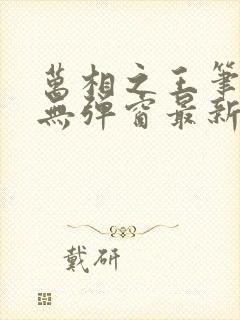 萬相之王筆
無彈窗最新
戴研